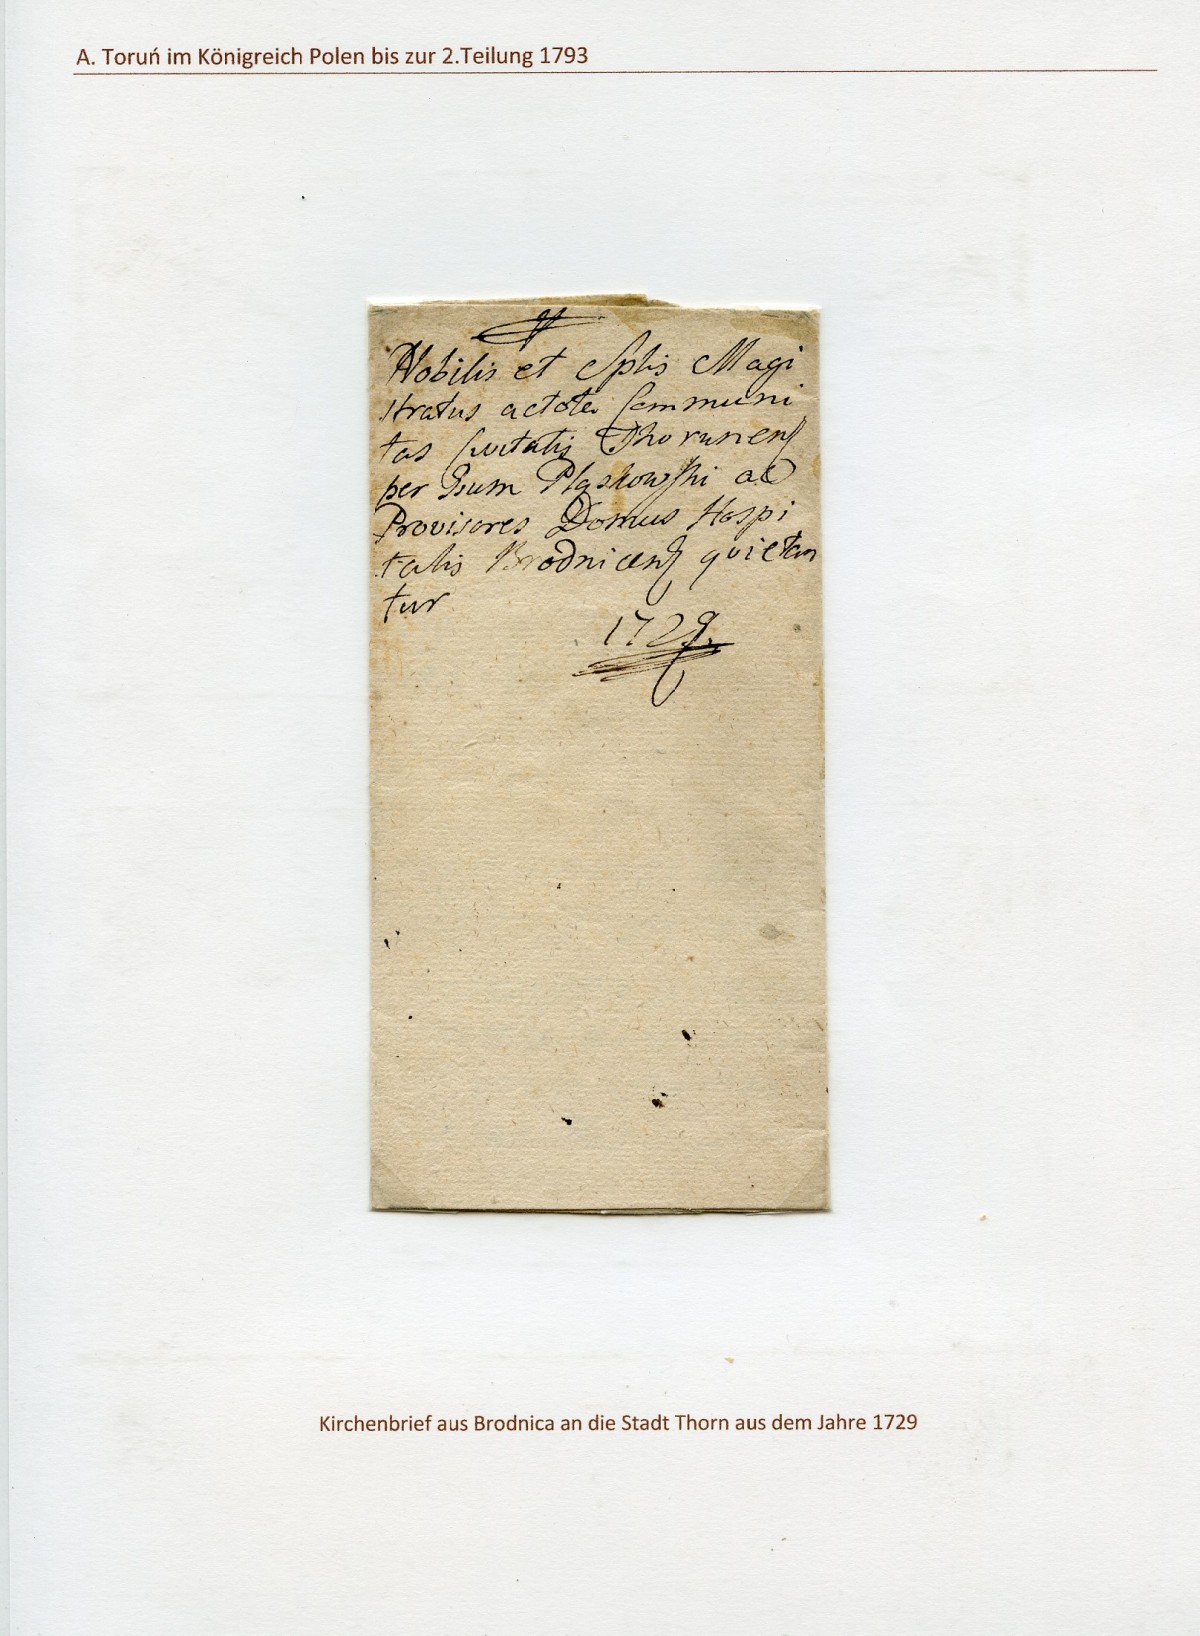 A. Toruń im Königreich Polen bis zur 2.Teilung 1793
Nobilis et Splis Magi
stratus ac tota Communi
tas Civitatis Thorunens
per Plaskowski ac
Provisores Domus Hospi
talis Brodnicens quietan
tur
1729.
Kirchenbrief aus Brodnica an die Stadt Thorn aus dem Jahre 1729